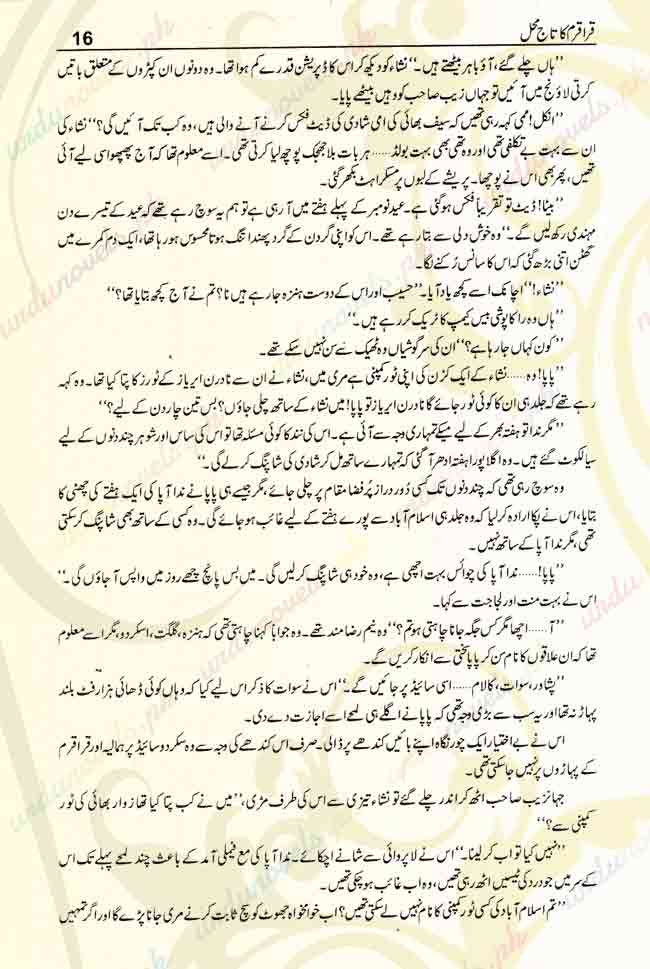 قراقرم کا تاج محل 16
”ہاں چلے گئے، آؤ باہر بیٹھتے ہیں۔“ نشاء کو دیکھ کر اس کا ڈپریشن قدرے کم ہوا تھا۔ وہ دونوں ان کپڑوں کے متعلق باتیں
کرتی لاؤنج میں آئیں تو جہاں زیب صاحب کو وہیں بیٹھے پایا۔
”انکل! ممی کہہ رہی تھیں کہ سیف بھائی کی امی شادی کی ڈیٹ فکس کرنے آنے والی ہیں، وہ کب تک آئیں گی؟“ نشاء کی
ان سے بہت بے تکلفی تھی اور وہ تھی بھی بہت بولڈ...... ہر بات بلا جھجک پوچھ لیا کرتی تھی۔ اسے معلوم تھا کہ آج پھپھو اسی لیے آئی
تھیں، پھر بھی اس نے پوچھا۔ پریشے کے لبوں پر مسکراہٹ بکھر گئی۔
”بیٹا! ڈیٹ تو تقریباً فکس ہو گئی ہے۔ عید نومبر کے پہلے ہفتے میں آ رہی ہے تو ہم یہ سوچ رہے تھے کہ عید کے تیسرے دن
مہندی رکھ لیں گے۔“ وہ خوش دلی سے بتا رہے تھے۔ اس کو اپنی گردن کے گرد پھندا تنگ ہوتا محسوس ہو رہا تھا، ایک دم کمرے میں
گھٹن اتنی بڑھ گئی کہ اس کا سانس رکنے لگا۔
”نشاء!“ اچانک اسے کچھ یاد آیا۔ ”حسیب اور اس کے دوست ہنزہ جا رہے ہیں نا؟ تم نے آج کچھ بتایا تھا؟“
”ہاں وہ راکاپوشی بیس کیمپ کا ٹریک کر رہے ہیں۔“
”کون کہاں جا رہا ہے؟“ ان کی سرگوشیاں وہ ٹھیک سے سن نہیں سکے تھے۔
”پاپا! وہ...... نشاء کے ایک کزن کی اپنی ٹور کمپنی ہے مری میں، نشاء نے ان سے نادرن ایریاز کے ٹورز کا پتا کیا تھا۔ وہ کہہ
رہے تھے کہ جلد ہی ان کا کوئی ٹور جائے گا نادرن ایریاز تو پاپا! میں نشاء کے ساتھ چلی جاؤں؟ بس تین چار دن کے لیے؟“
”مگر ندا تو ہفتہ بھر کے لیے میکے تمہاری وجہ سے آئی ہے۔ اس کی نند کا کوئی مسئلہ تھا تو اس کی ساس اور شوہر چند دنوں کے لیے
سیالکوٹ گئے ہیں۔ وہ اگلا پورا ہفتہ ادھر آ گئی کہ تمہارے ساتھ مل کر شادی کی شاپنگ کرلے گی۔“
وہ سوچ رہی تھی کہ چند دنوں تک کسی دور دراز پُر فضا مقام پر چلی جائے، مگر جیسے ہی پاپا نے ندا آپا کی ایک ہفتے کی چھٹی کا
بتایا، اس نے پکا ارادہ کر لیا کہ وہ جلد ہی اسلام آباد سے پورے ہفتے کے لیے غائب ہو جائے گی۔ وہ کسی کے ساتھ بھی شاپنگ کر سکتی
تھی، مگر ندا آپا کے ساتھ نہیں۔
”پاپا!...... ندا آپا کی چوائس بہت اچھی ہے، وہ خود ہی شاپنگ کر لیں گی۔ میں بس پانچ چھے روز میں واپس آ جاؤں گی۔“
اس نے بہت منت اور لجاجت سے کہا۔
”آ...... اچھا مگر کس جگہ جانا چاہتی ہو تم؟“ وہ نیم رضامند تھے۔ وہ جواباً کہنا چاہتی تھی کہ ہنزہ، گلگت، اسکردو، مگر اسے معلوم
تھا کہ ان علاقوں کا نام سن کر پاپا سختی سے انکار کریں گے۔
”پشاور، سوات، کالام...... اسی سائیڈ پر جائیں گے۔“ اس نے سوات کا ذکر اس لیے کیا کہ وہاں کوئی ڈھائی ہزار فٹ بلند
پہاڑ نہ تھا اور یہ سب سے بڑی وجہ تھی کہ پاپا نے اگلے ہی لمحے اسے اجازت دے دی۔
اس نے بے اختیار ایک چور نگاہ اپنے بائیں کندھے پر ڈالی۔ صرف اس کندھے کی وجہ سے وہ سکردو سائیڈ پر ہمالیہ اور قراقرم
کے پہاڑوں پر نہیں جا سکتی تھی۔
جہانزیب صاحب اٹھ کر اندر چلے گئے تو نشاء تیزی سے اس کی طرف مڑی، ”میں نے کب پتا کیا تھا زوار بھائی کی ٹور
کمپنی سے؟“
”نہیں کیا تو اب کر لینا۔“ اس نے لاپروائی سے شانے اچکائے۔ ندا آپا کی مع فیملی آمد کے باعث چند لمحے پہلے تک اس
کے سر میں جو درد کی ٹیسیں اٹھ رہی تھیں، وہ اب غائب ہو چکی تھیں۔
”تم اسلام آباد کی کسی ٹور کمپنی کا نام نہیں لے سکتی تھیں؟ اب خوامخواہ جھوٹ کو سچ ثابت کرنے مری جانا پڑے گا اور اگر تمہیں